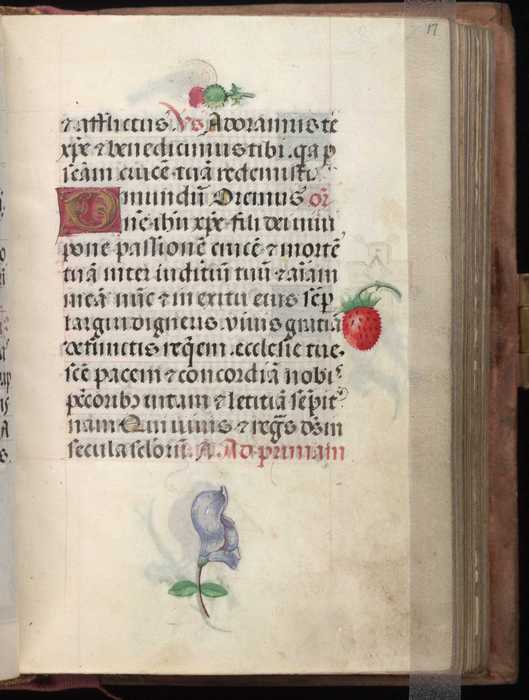 17
⁊ afflictus. Vs Adoramus te
xp̄e ⁊ benedicimus tibi. q̄a p
sc̄am crucē tuā redemisti
mundū Oremus or̄
Dn̄e ihū xp̄e fili dei viui
pone passionē crucē ⁊ mortē
tuā inter iudiciū tuū ⁊ aīam
meā nūc ⁊ in
largiri digneris. viuis gratiā
defunctis reqēm. ecclesie tue.
scē pacem ⁊ concordiā nobis
pc̄coribꝫ vitam ⁊ letitiā sēpit
nam Qui viuis ⁊ regs ds̄ in
secula sclorū. A. Ad primam